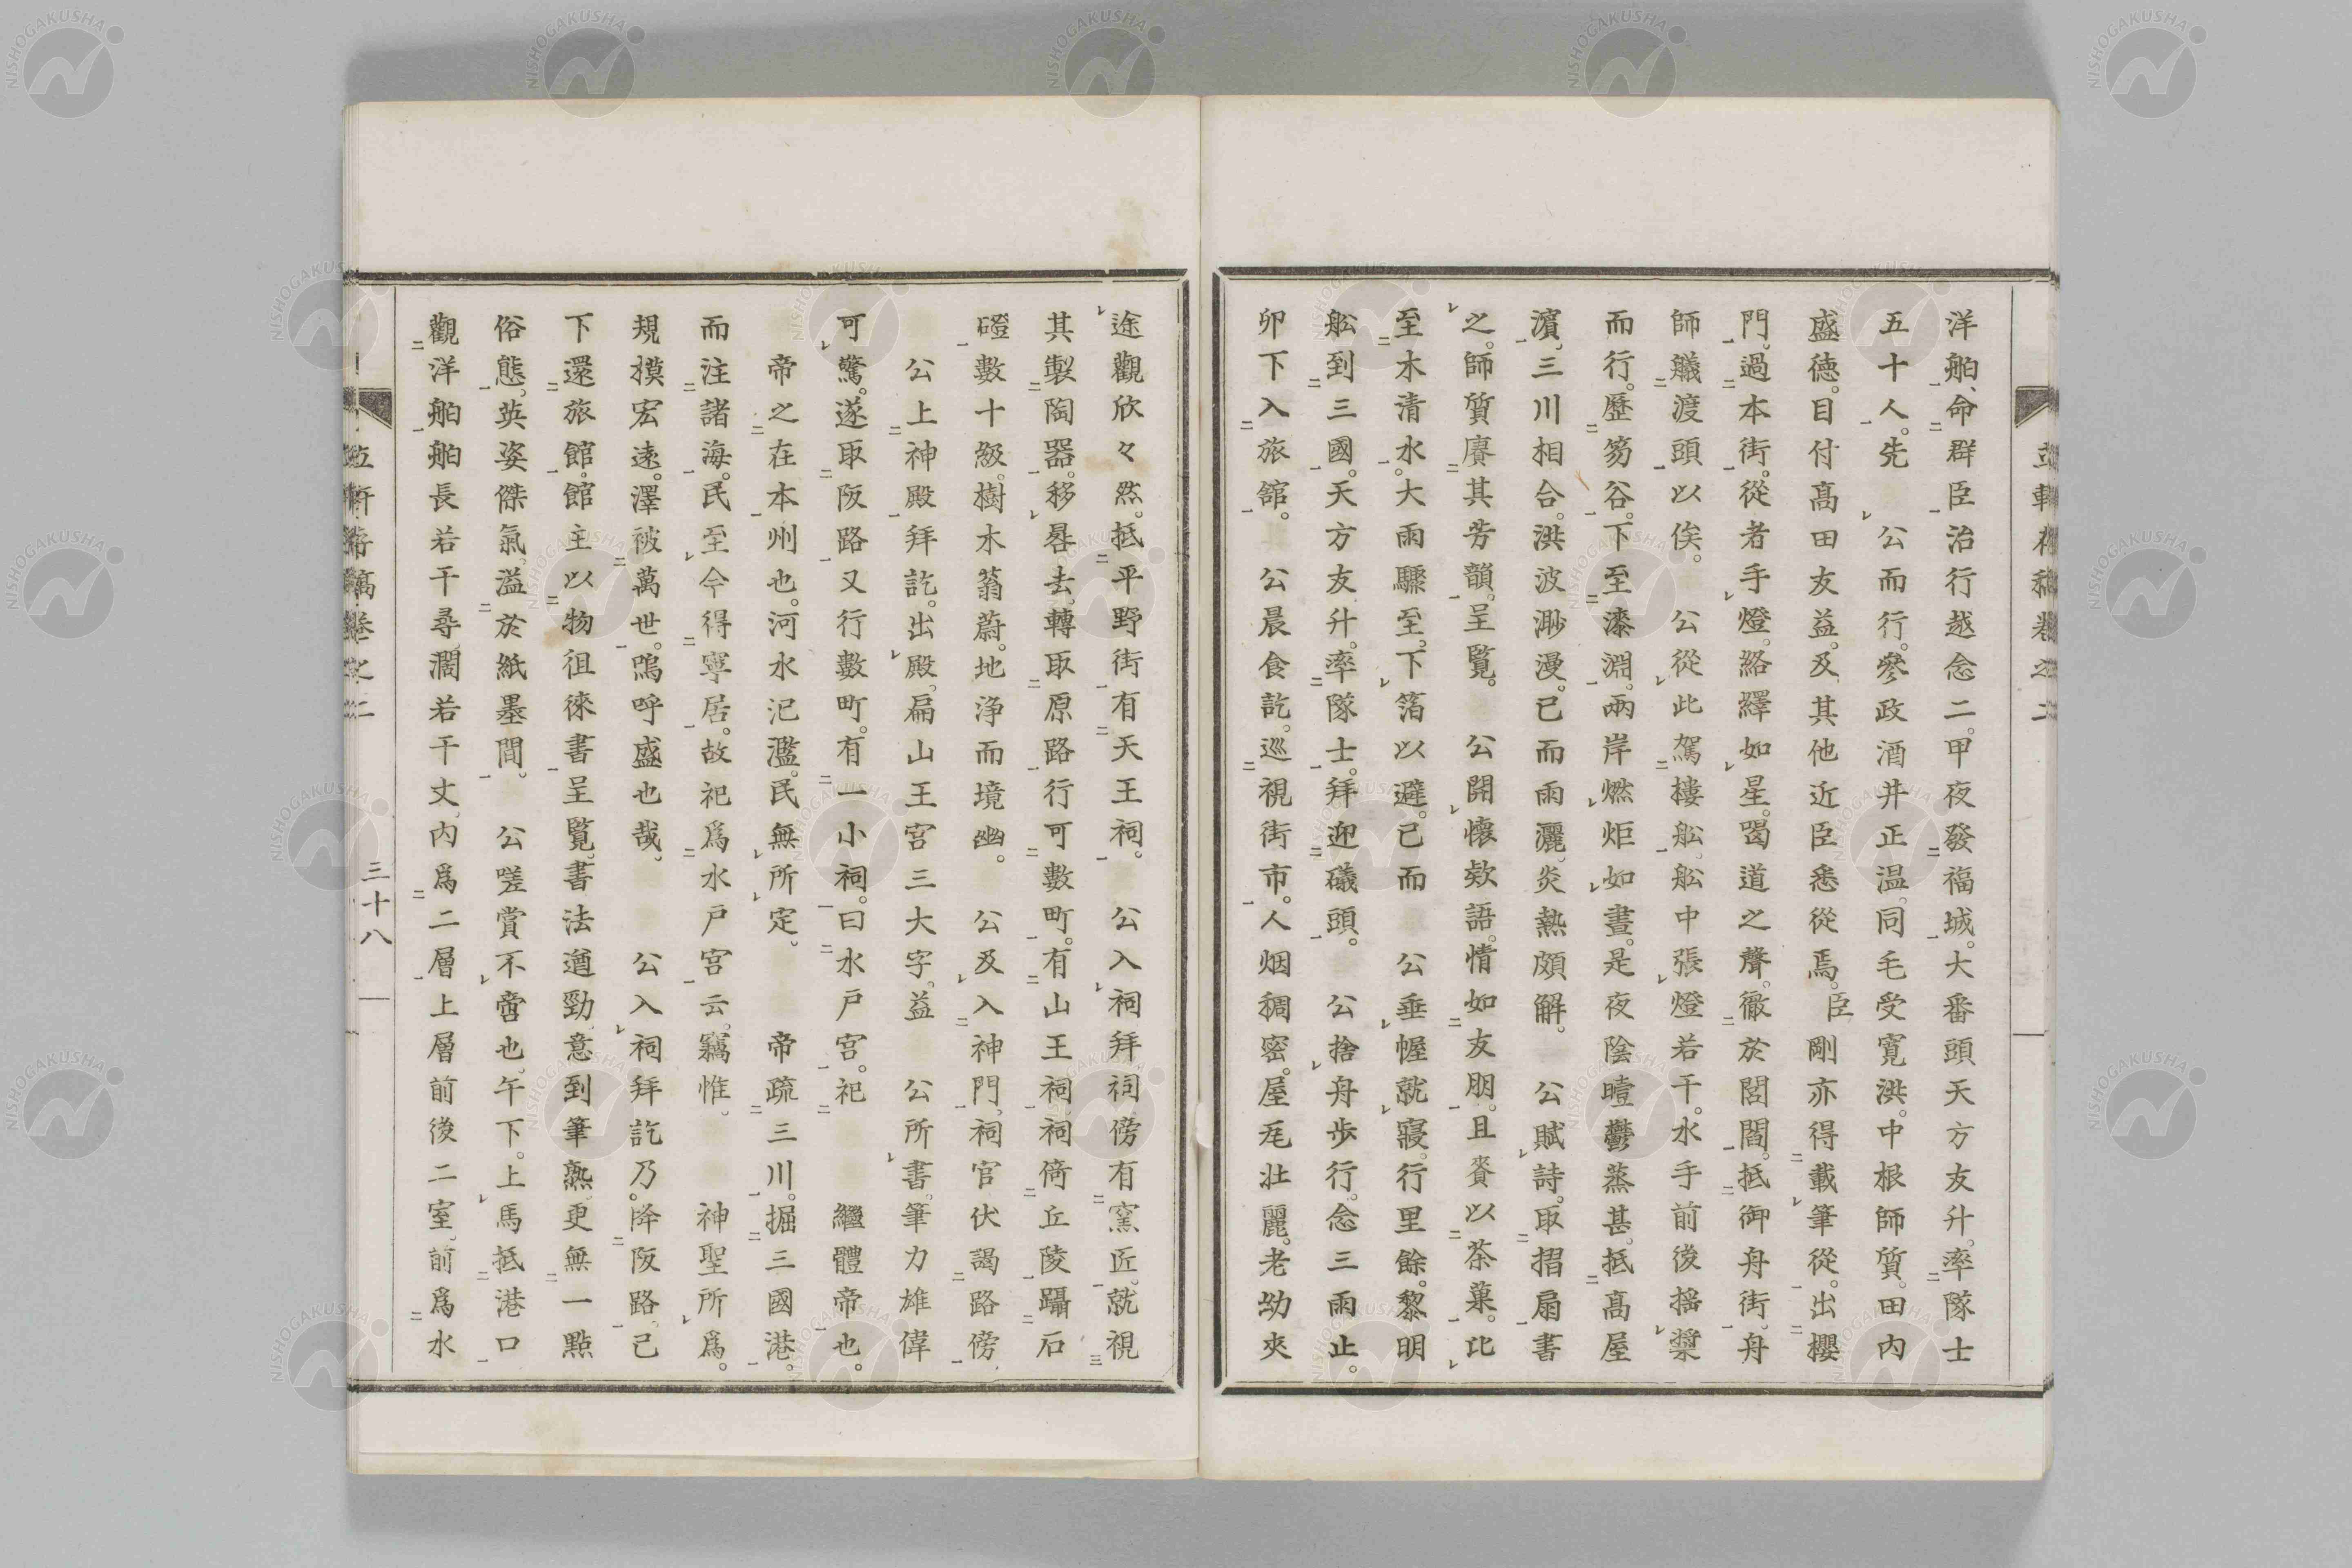 洋舶、命群臣治行越念二。甲夜發福城。大番頭天方友升。率隊士
五十人。先　公而行。參政酒井正温。同毛受寛洪。中根師質。田内
盛徳。目付高田友益。及其他近臣悉從焉。臣剛亦得載筆從。出櫻
門。過本街。從者手燈。絡繹如星。喝道之聲。徹於閭閻。抵御舟街。舟
師艤渡頭以俟。　公從此駕樓舩。舩中張燈若干。水手前後揺槳
而行。歴笏谷。下至漆淵。兩岸燃炬如晝。是夜陰曀鬱蒸甚。抵高屋
濱。三川相合。洪波渺漫。已而雨灑。炎熱頗解。　公賦詩。取摺扇書
之。師質賡其芳韻。呈覧。　公開懷欵語。情如友朋。且賚以茶菓。比
至木清水。大雨驟至。下箔以避。已而　公垂幄就寢。行里餘。黎明
舩到三國。天方友升。率隊士。拜迎礒頭。　公捨舟歩行。念三雨止。
卯下入旅舘。　公晨食訖。巡視街市。人烟稠密。屋宅壮麗。老幼夾
途觀欣々然。抵平野街有天王祠。　公入祠拜祠傍有窯匠。就視
其製陶器。移晷去。轉取原路行可數町。有山王祠祠倚丘陵躡石
磴數十級。樹木蓊蔚。地浄而境幽。　公及入神門。祠官伏謁路傍
公上神殿拜訖。出殿。扁山王宮三大字。益　公所書。筆力雄偉
可驚。遂取阪路又行數町。有一小祠。曰水戸宮。祀　繼體帝也。
帝之在本州也。河水汜濫。民無所定。　帝疏三川。掘三國港。
而注諸海。民至今得寧居。故祀爲水戸宮云。竊惟。　神聖所爲。
規模宏遠。澤被萬世。嗚呼盛也哉。　公入祠拜訖乃。降阪路。已
下還旅館。館主以物徂徠書呈覧。書法遒勁。意到筆熟。更無一點
俗態。英姿傑氣。溢於紙墨間。　公嗟賞不啻也。午下。上馬抵港口
觀洋舶舶長若干尋。濶若干丈。内爲二層上層前後二室。前爲水
三十八